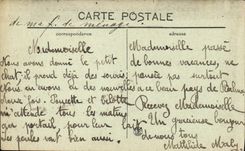 CARTE POSTALE
correspondance
Mademoiselle
Nous avons donné le petit
chat. Il prend déjà des souris
Nous en avons eu des nouvelles
deux fois. Toupette et
attende tous les matins
au portail pour leur
Les poules vont bien aussi.
Mademoiselle passé
de bonnes vacances, ne
pensée pas surtout
a ce beau pays de
Recevez Mademoiselle
Un gracieuse bonjour
de nous tous
Mathilde Maly